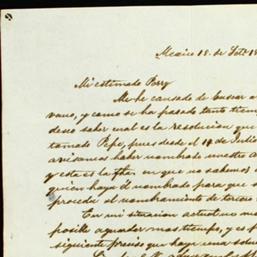 Mexico 18. de Set. 18
Mi estimado Pery
Me he cansado de buscar a
vano, y como se ha pasado tanto tiem
deseo saber cual es la resolucion que
tamado Pepe, pues desde el 14 de Julio
avisamos haber nombrado nuestro a
y esta es la fha. en que no sabemos
quien haya él nombrado para que s
procede al nombramiento de tercero
En mi situacion actual no me
posible aguardar mas tiempo, y es p
siguiente preciso que haya una solu